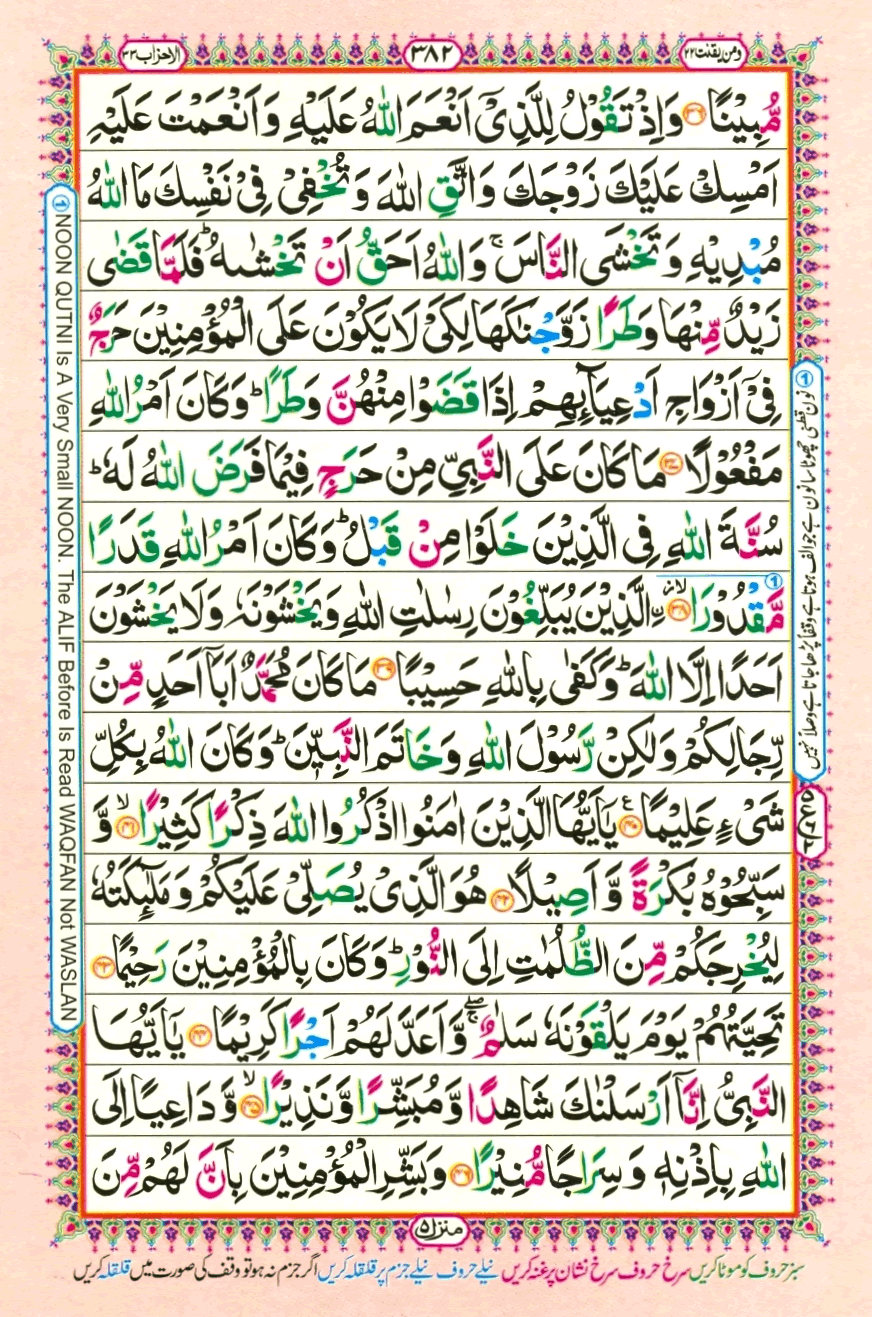 ومن يقنت ٢٢
٣٨٢
الاحزاب ٣٣
مُّبِيْنًا ﴿۳۶﴾ وَاِذْ تَقُوْلُ لِلَّذِيْۤ اَنْعَمَ اللّٰهُ عَلَيْهِ وَاَنْعَمْتَ عَلَيْهِ
اَمْسِكْ عَلَيْكَ زَوْجَكَ وَاتَّقِ اللّٰهَ وَتُخْفِيْ فِيْ نَفْسِكَ مَا اللّٰهُ
مُبْدِيْهِ وَتَخْشَى النَّاسَ ۚ وَاللّٰهُ اَحَقُّ اَنْ تَخْشٰىهُ ؕ فَلَمَّا قَضٰى
زَيْدٌ مِّنْهَا وَطَرًا زَوَّجْنٰكَهَا لِكَيْ لَا يَكُوْنَ عَلَى الْمُؤْمِنِيْنَ حَرَجٌ
فِيْۤ اَزْوَاجِ اَدْعِيَآىِٕهِمْ اِذَا قَضَوْا مِنْهُنَّ وَطَرًا ؕ وَكَانَ اَمْرُ اللّٰهِ
مَفْعُوْلًا ﴿۳۷﴾ مَا كَانَ عَلَى النَّبِيِّ مِنْ حَرَجٍ فِيْمَا فَرَضَ اللّٰهُ لَهٗ ؕ
سُنَّةَ اللّٰهِ فِي الَّذِيْنَ خَلَوْا مِنْ قَبْلُ ؕ وَكَانَ اَمْرُ اللّٰهِ قَدَرًا
مَّقْدُوْرَا ﴿۳۸﴾ ۙ ِ۟الَّذِيْنَ يُبَلِّغُوْنَ رِسٰلٰتِ اللّٰهِ وَيَخْشَوْنَهٗ وَلَا يَخْشَوْنَ
اَحَدًا اِلَّا اللّٰهَ ؕ وَكَفٰى بِاللّٰهِ حَسِيْبًا ﴿۳۹﴾ مَا كَانَ مُحَمَّدٌ اَبَاۤ اَحَدٍ مِّنْ
رِّجَالِكُمْ وَلٰكِنْ رَّسُوْلَ اللّٰهِ وَخَاتَمَ النَّبِيّٖنَ ؕ وَكَانَ اللّٰهُ بِكُلِّ
شَيْءٍ عَلِيْمًا ﴿۴۰﴾ يٰۤاَيُّهَا الَّذِيْنَ اٰمَنُوا اذْكُرُوا اللّٰهَ ذِكْرًا كَثِيْرًا ﴿۴۱﴾ ۙ وَّ
سَبِّحُوْهُ بُكْرَةً وَّاَصِيْلًا ﴿۴۲﴾ هُوَ الَّذِيْ يُصَلِّيْ عَلَيْكُمْ وَمَلٰٓىِٕكَتُهٗ
لِيُخْرِجَكُمْ مِّنَ الظُّلُمٰتِ اِلَى النُّوْرِ ؕ وَكَانَ بِالْمُؤْمِنِيْنَ رَحِيْمًا ﴿۴۳﴾
تَحِيَّتُهُمْ يَوْمَ يَلْقَوْنَهٗ سَلٰمٌ ۚۖ وَّاَعَدَّ لَهُمْ اَجْرًا كَرِيْمًا ﴿۴۴﴾ يٰۤاَيُّهَا
النَّبِيُّ اِنَّاۤ اَرْسَلْنٰكَ شَاهِدًا وَّمُبَشِّرًا وَّنَذِيْرًا ﴿۴۵﴾ ۙ وَّدَاعِيًا اِلَى
اللّٰهِ بِاِذْنِهٖ وَسِرَاجًا مُّنِيْرًا ﴿۴۶﴾ وَبَشِّرِ الْمُؤْمِنِيْنَ بِاَنَّ لَهُمْ مِّنَ
منزل ۵
سبز حروف کو موٹا کریں سرخ حروف سرخ نشان پر غنہ کریں نیلے حروف نیلے جزم پر قلقلہ کریں اگر جزم نہ ہو تو وقف کی صورت میں قلقلہ کریں
① نون قطنی چھوٹا سا نون ہے جو الف ہوتا ہے وقفاً پڑھا جاتا ہے وصلاً نہیں
① NOON QUTNI Is A Very Small NOON. The ALIF Before Is Read WAQFAN Not WASLAN